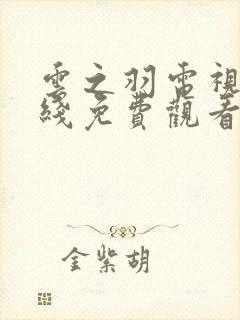 雲之羽電視
綫免費觀看
金紫胡